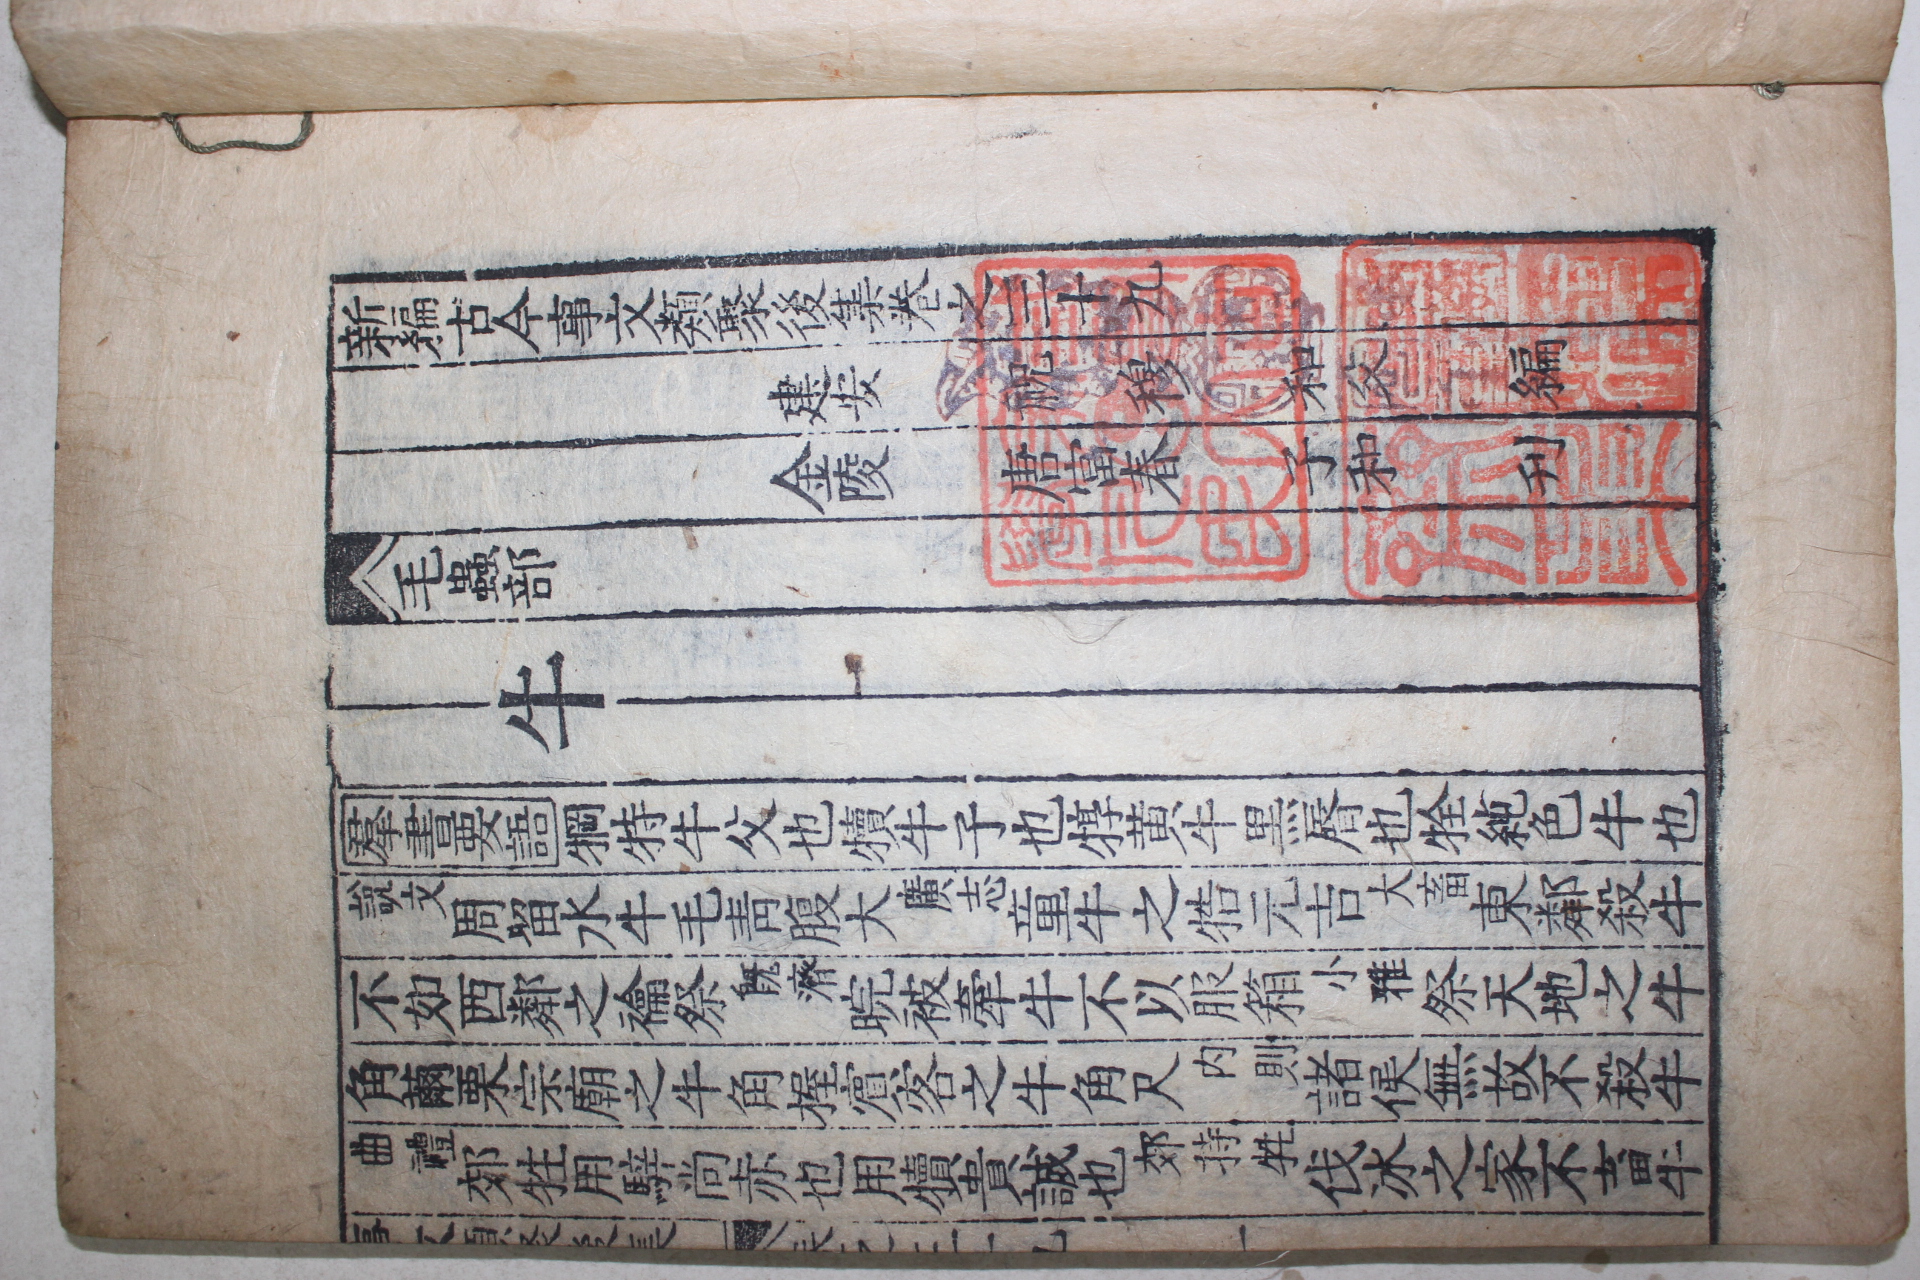 新編古今事文類聚後集卷之三十九
建安 祝穆 和父 編
金陵 唐富春 子和 刊
毛蟲部
牛
羣書要語 犅特牛父也犢牛子也犉黃牛黑脣也牷純色牛也
說文周留水牛毛青腹大廣志童牛之牿元吉大畜東鄰殺牛
不如西鄰之禴祭旣濟睆被牽牛不以服箱小雅祭天地之牛
角繭栗宗廟之牛角握賔客之牛角尺内則諸侯無故不殺牛
曲禮郊牲用騂尚赤也用犢貴誠也郊特牲伐冰之家不畜牛
事文類聚後集 卷之三十九 一